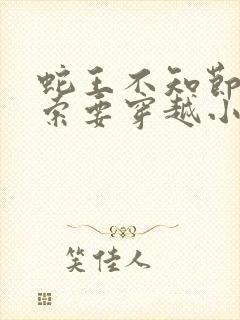 蛇王不知节
索要穿越小
笑佳人